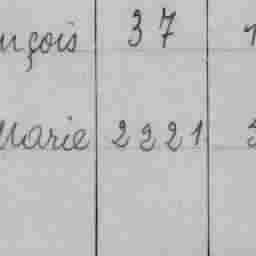 nçois 37
Marie 2221